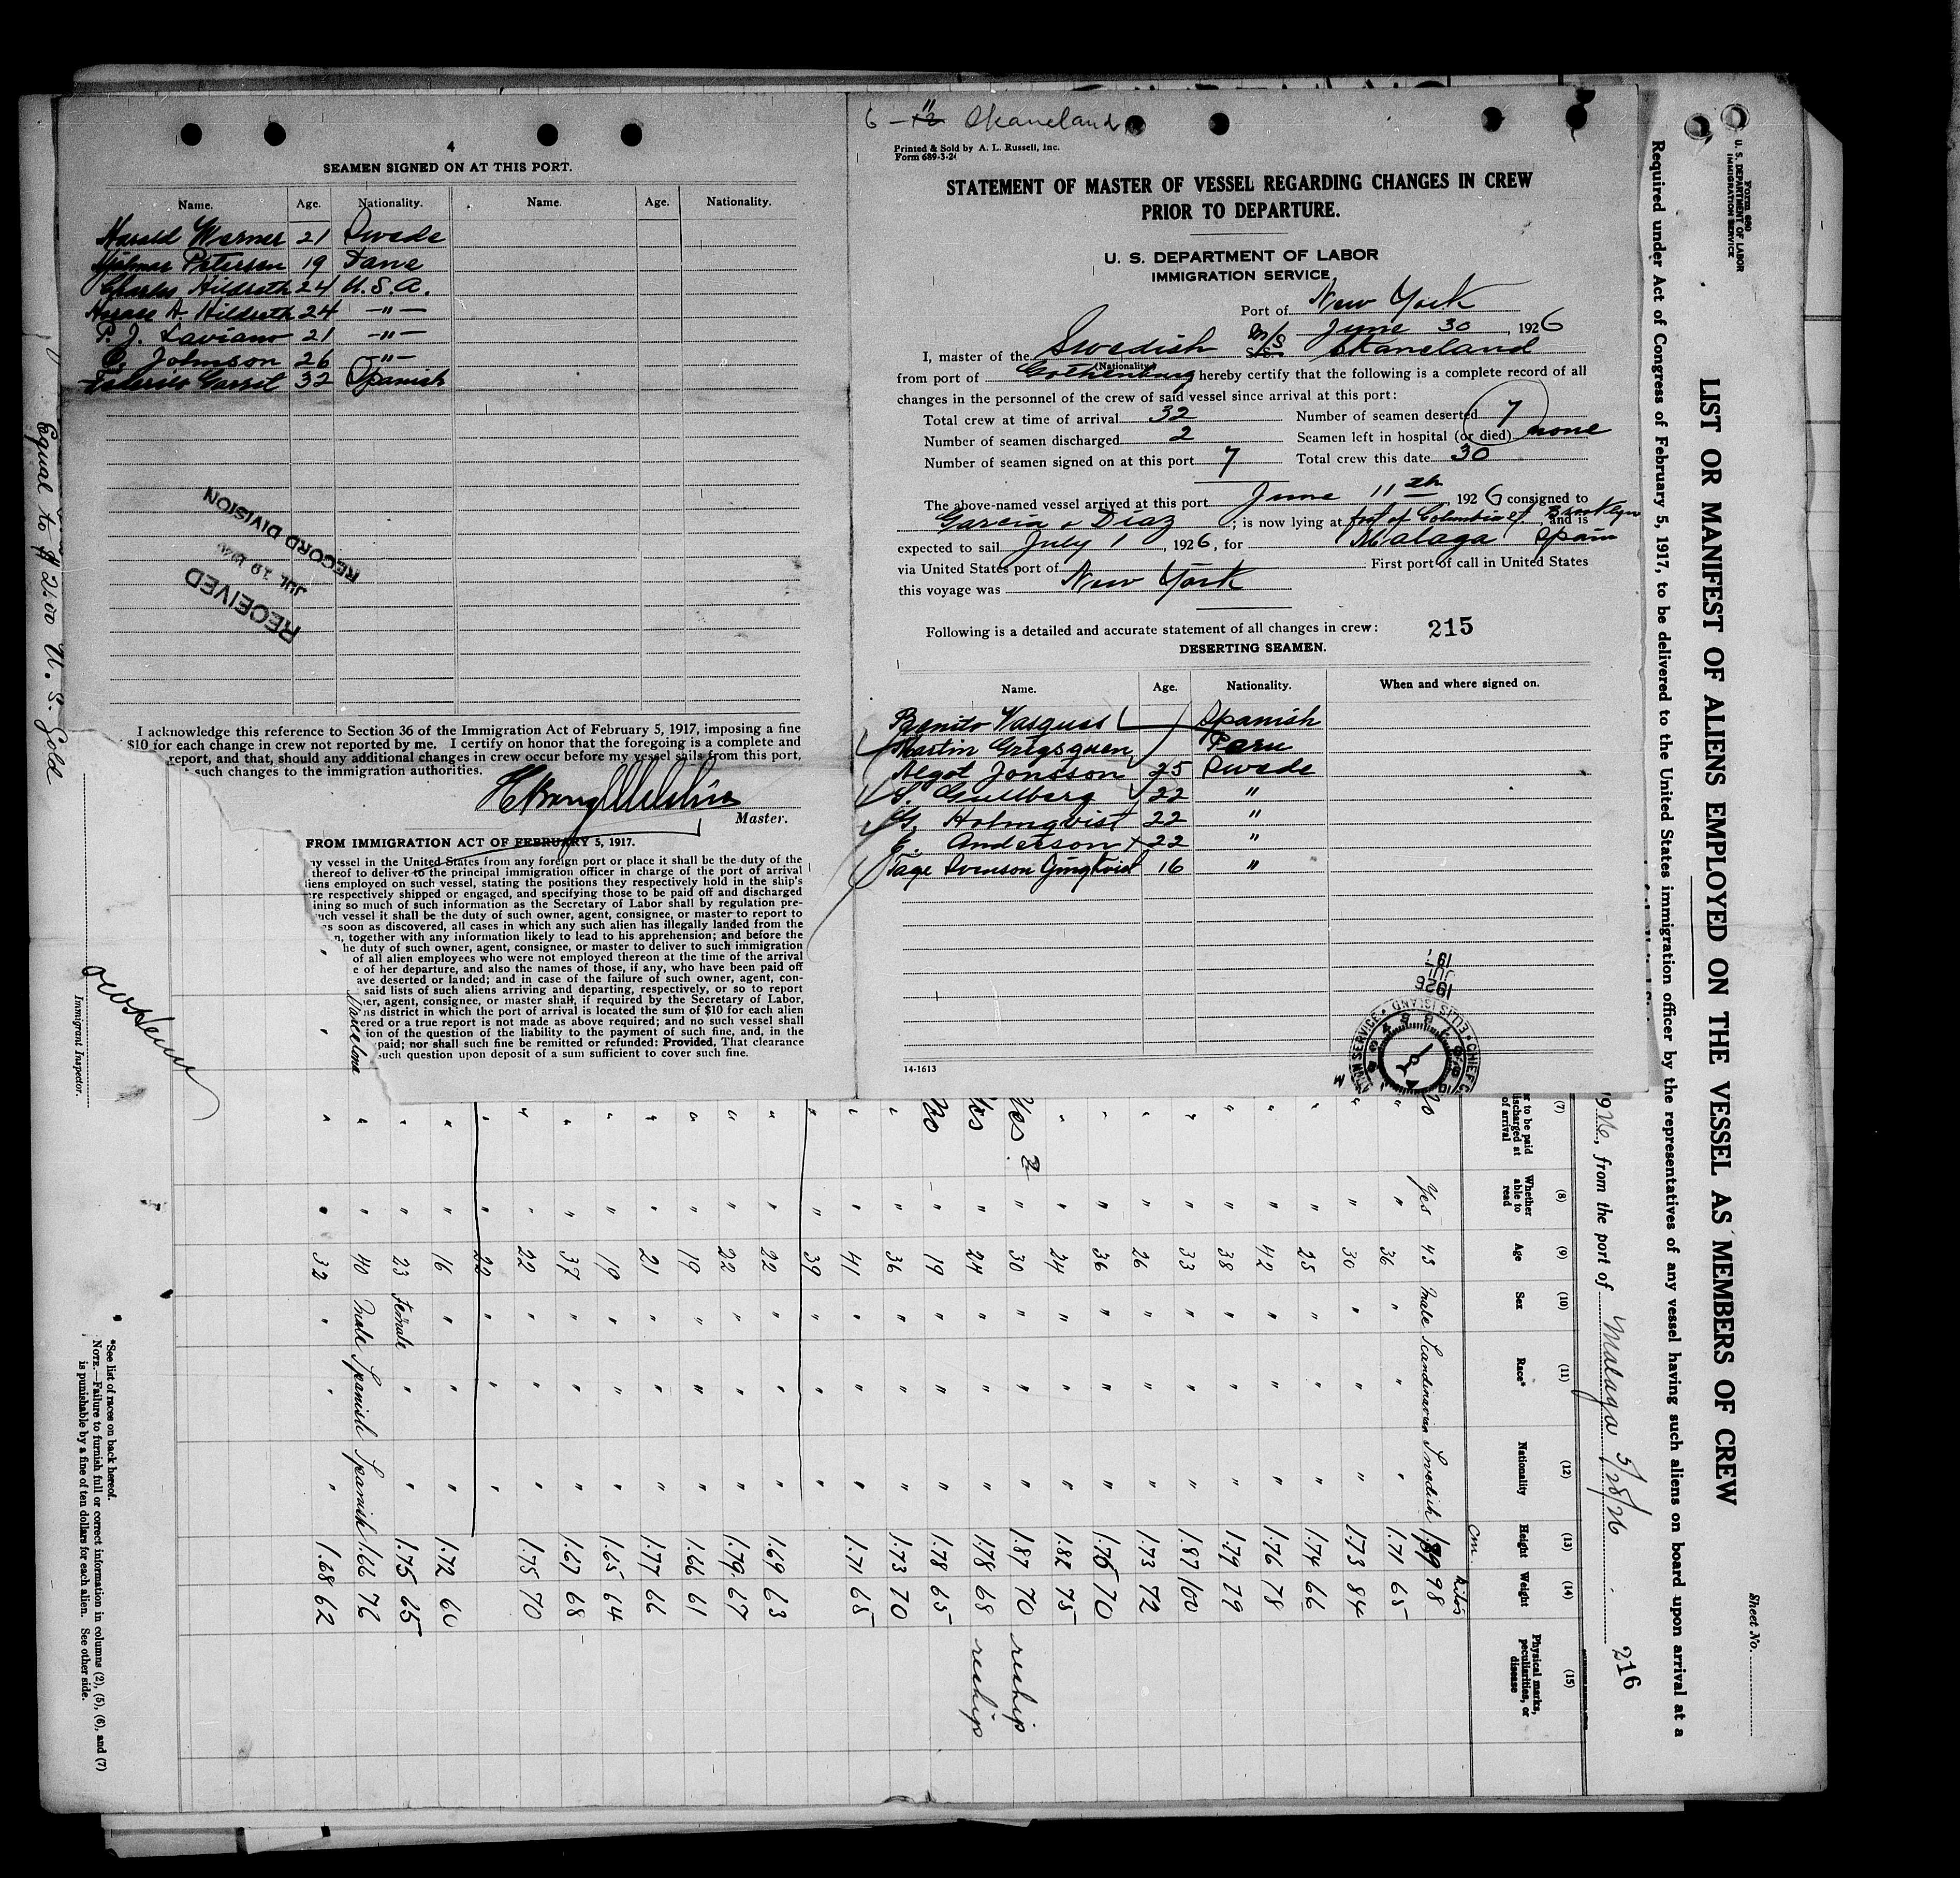 4
SEAMEN SIGNED ON AT THIS PORT.
Name. Age. Nationality. Name. Age. Nationality.
Harald Werner 21 Swede
Hjalmar Petersen 19 Dane
Charles Hildreth 24 U.S.A.
Horace A. Hildreth 24 —"—
P. J. Laviano 21 —"—
C. Johnson 26 —"—
Federico Garril 32 Spanish
RECEIVED
JUL 19 1926
RECORD DIVISION
I acknowledge this reference to Section 36 of the Immigration Act of February 5, 1917, imposing a fine
$10 for each change in crew not reported by me. I certify on honor that the foregoing is a complete and
report, and that, should any additional changes in crew occur before my vessel sails from this port,
such changes to the immigration authorities.
Master.
FROM IMMIGRATION ACT OF FEBRUARY 5, 1917.
ny vessel in the United States from any foreign port or place it shall be the duty of the
thereof to deliver to the principal immigration officer in charge of the port of arrival
liens employed on such vessel, stating the positions they respectively hold in the ship's
re respectively shipped or engaged, and specifying those to be paid off and discharged
ining so much of such information as the Secretary of Labor shall by regulation pre-
uch vessel it shall be the duty of such owner, agent, consignee, or master to report to
as soon as discovered, all cases in which any such alien has illegally landed from the
n, together with any information likely to lead to his apprehension; and before the
he duty of such owner, agent, consignee, or master to deliver to such immigration
of all alien employees who were not employed thereon at the time of the arrival
e of her departure, and also the names of those, if any, who have been paid off
ave deserted or landed; and in case of the failure of such owner, agent, con-
said lists of such aliens arriving and departing, respectively, or so to report
er, agent, consignee, or master shall, if required by the Secretary of Labor,
ns district in which the port of arrival is located the sum of $10 for each alien
ered or a true report is not made as above required; and no such vessel shall
ion of the question of the liability to the payment of such fine, and, in the
paid; nor shall such fine be remitted or refunded: Provided, That clearance
such question upon deposit of a sum sufficient to cover such fine.
6 - 11 Skaneland
Printed & Sold by A. L. Russell, Inc.
Form 689-3-24
STATEMENT OF MASTER OF VESSEL REGARDING CHANGES IN CREW
PRIOR TO DEPARTURE.
U. S. DEPARTMENT OF LABOR
IMMIGRATION SERVICE
Port of New York
June 30, 1926
I, master of the Swedish M/S S/S Skaneland
(Nationality)
from port of Gothenburg hereby certify that the following is a complete record of all
changes in the personnel of the crew of said vessel since arrival at this port:
Total crew at time of arrival 32 Number of seamen deserted 7
Number of seamen discharged 2 Seamen left in hospital (or died) none
Number of seamen signed on at this port 7 Total crew this date 30
The above-named vessel arrived at this port June 11th, 1926 consigned to
Garcia & Diaz; is now lying at foot of Columbia st. Brooklyn, and is
expected to sail July 1, 1926, for Malaga Spain
via United States port of First port of call in United States
this voyage was New York
Following is a detailed and accurate statement of all changes in crew: 215
DESERTING SEAMEN.
Name. Age. Nationality. When and where signed on.
Benito Vasquess Spanish
Martin Grigsquen Peru
Algot Jonsson 25 Swede
S. Gullberg 22 "
G. Holmqvist 22 "
E. Anderson 22 "
Tage Svenson Ljungkvist 16 "
14-1613
1926
JUL
Equal to $ 21.00 U. S. Gold
Immigrant Inspector.
Barcelona
Form 680
U. S. DEPARTMENT OF LABOR
IMMIGRATION SERVICE
Sheet No.
LIST OR MANIFEST OF ALIENS EMPLOYED ON THE VESSEL AS MEMBERS OF CREW
Required under Act of Congress of February 5, 1917, to be delivered to the United States immigration officer by the representatives of any vessel having such aliens on board upon arrival at a
1926, from the port of Malaga 5/28/26 216
(7) (8) (9) (10) (11) (12) (13) (14) (15)
er to be paid discharged at of arrival
Whether able to read
Age
Sex
Race*
Nationality
Height
Weight
Physical marks, peculiarities, or disease
cm. kilos
Yes 43 Male Scandinavian Swedish 1.89 98
" " 36 " " " 1.71 65
" " 30 " " " 1.73 84
" " 25 " " " 1.74 66
" " 42 " " " 1.76 78
" " 38 " " " 1.79 79
" " 33 " " " 1.87 100
" " 26 " " " 1.73 72
" " 36 " " " 1.75 70
" " 24 " " " 1.82 75
Yes " 30 " " " 1.87 70 reship
Yes " 24 " " " 1.78 68 reship
No " 19 " " " 1.78 65
" " 36 " " " 1.73 70
" " 41 " " " 1.71 65
" " 39 " " "
" " 22 " " " 1.69 63
" " 22 " " " 1.79 67
" " 19 " " " 1.66 61
" " 21 " " " 1.77 66
" " 19 " " " 1.65 64
" " 37 " " " 1.67 68
" " 22 " " " 1.75 70
" " 22 " " "
" " 16 " " " 1.72 60
" " 23 Female " " 1.75 65
" " 40 Male Spanish Spanish 1.66 76
" " 32 " " " 1.68 62
*See list of races on back hereof.
NOTE.—Failure to furnish full or correct information in columns (2), (5), (6), and (7)
is punishable by a fine of ten dollars for each alien. See other side.